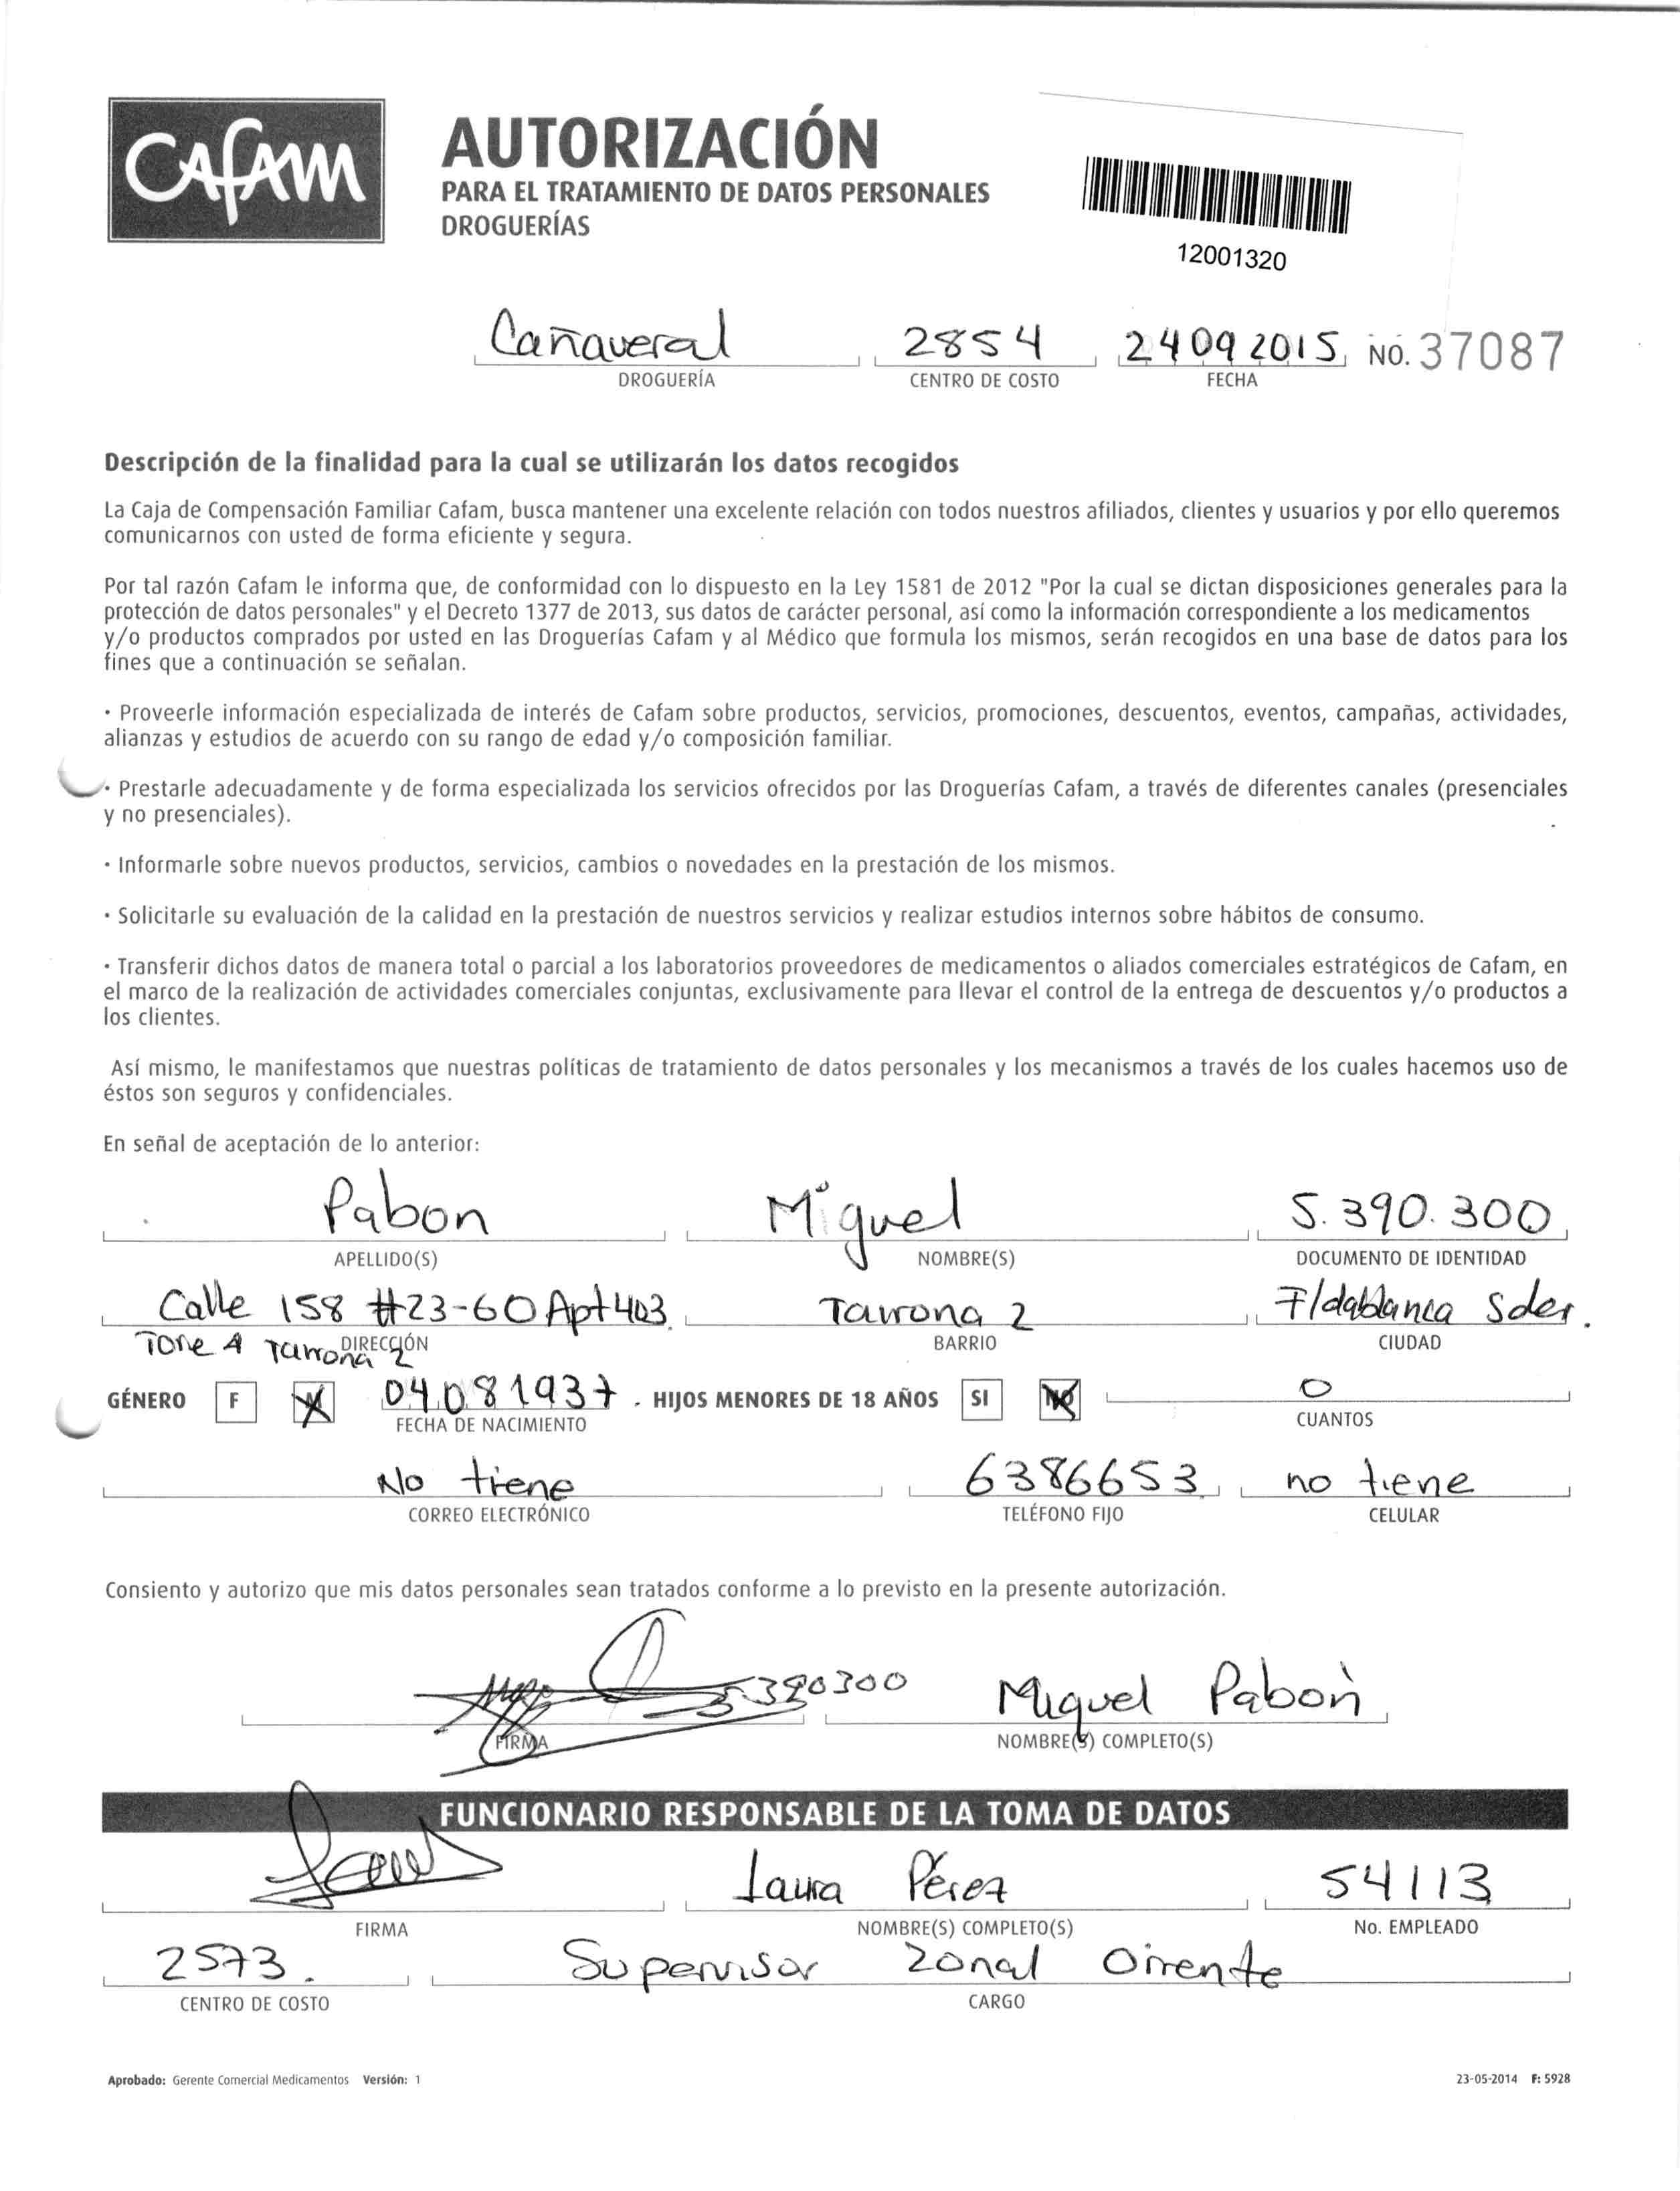 Cafam
AUTORIZACIÓN
PARA EL TRATAMIENTO DE DATOS PERSONALES
DROGUERÍAS
12001320
Cañaveral 2854 24 09 2015 NO. 37087
DROGUERÍA CENTRO DE COSTO FECHA
Descripción de la finalidad para la cual se utilizarán los datos recogidos
La Caja de Compensación Familiar Cafam, busca mantener una excelente relación con todos nuestros afiliados, clientes y usuarios y por ello queremos
comunicarnos con usted de forma eficiente y segura.
Por tal razón Cafam le informa que, de conformidad con lo dispuesto en la Ley 1581 de 2012 "Por la cual se dictan disposiciones generales para la
protección de datos personales" y el Decreto 1377 de 2013, sus datos de carácter personal, así como la información correspondiente a los medicamentos
y/o productos comprados por usted en las Droguerías Cafam y al Médico que formula los mismos, serán recogidos en una base de datos para los
fines que a continuación se señalan.
• Proveerle información especializada de interés de Cafam sobre productos, servicios, promociones, descuentos, eventos, campañas, actividades,
alianzas y estudios de acuerdo con su rango de edad y/o composición familiar.
• Prestarle adecuadamente y de forma especializada los servicios ofrecidos por las Droguerías Cafam, a través de diferentes canales (presenciales
y no presenciales).
• Informarle sobre nuevos productos, servicios, cambios o novedades en la prestación de los mismos.
• Solicitarle su evaluación de la calidad en la prestación de nuestros servicios y realizar estudios internos sobre hábitos de consumo.
• Transferir dichos datos de manera total o parcial a los laboratorios proveedores de medicamentos o aliados comerciales estratégicos de Cafam, en
el marco de la realización de actividades comerciales conjuntas, exclusivamente para llevar el control de la entrega de descuentos y/o productos a
los clientes.
Así mismo, le manifestamos que nuestras políticas de tratamiento de datos personales y los mecanismos a través de los cuales hacemos uso de
éstos son seguros y confidenciales.
En señal de aceptación de lo anterior:
Pabon Miguel 5.390.300
APELLIDO(S) NOMBRE(S) DOCUMENTO DE IDENTIDAD
Calle 158 #23-60 Apt 403 Tayrona 2 F/dablanca Sder.
DIRECCIÓN BARRIO CIUDAD
Torre 4 Tayrona 2
GÉNERO F M 04 08 1937 HIJOS MENORES DE 18 AÑOS SI NO 0
FECHA DE NACIMIENTO CUANTOS
No tiene 6386653 no tiene
CORREO ELECTRÓNICO TELÉFONO FIJO CELULAR
Consiento y autorizo que mis datos personales sean tratados conforme a lo previsto en la presente autorización.
5390300 Miguel Pabon
FIRMA NOMBRE(S) COMPLETO(S)
FUNCIONARIO RESPONSABLE DE LA TOMA DE DATOS
Laura Pérez 54113
FIRMA NOMBRE(S) COMPLETO(S) No. EMPLEADO
2573. Supervisor Zonal Oriente
CENTRO DE COSTO CARGO
Aprobado: Gerente Comercial Medicamentos Versión: 1 23-05-2014 F: 5928